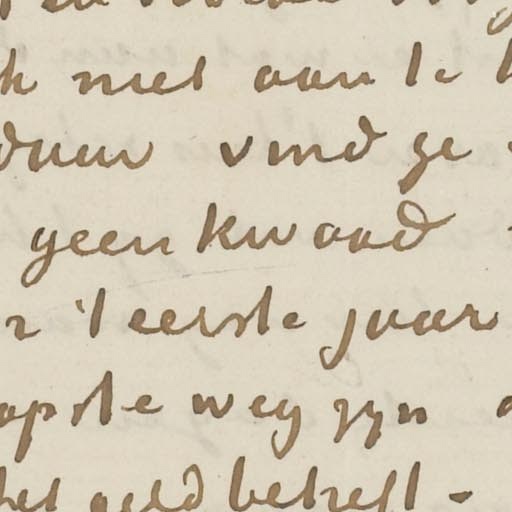 niet aan te
duur vind ge
geen kwaad
't eerste jaar
weg zyn
het geld betreft -